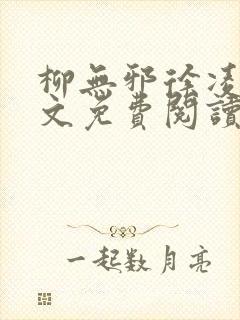 柳無邪徐凌
文免費閱讀
一起数月亮